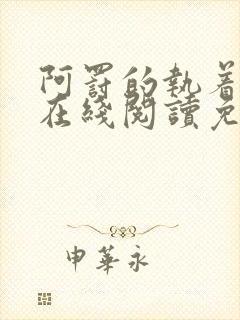 阿罸的執着
在綫閱讀免
申華永